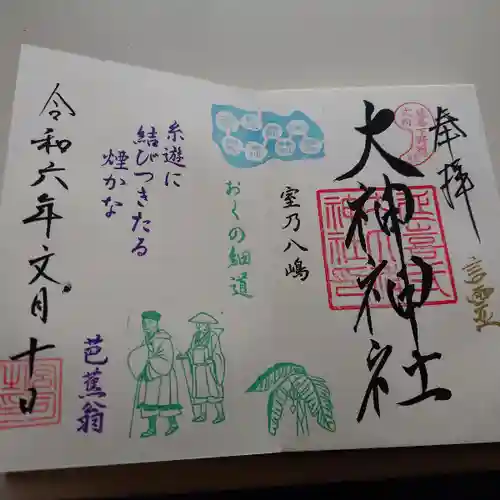 奉拝
大神神社
言霊
室乃八嶋
おくの細道
糸遊に
結びつきたる
煙かな
芭蕉翁
令和六年文月十日